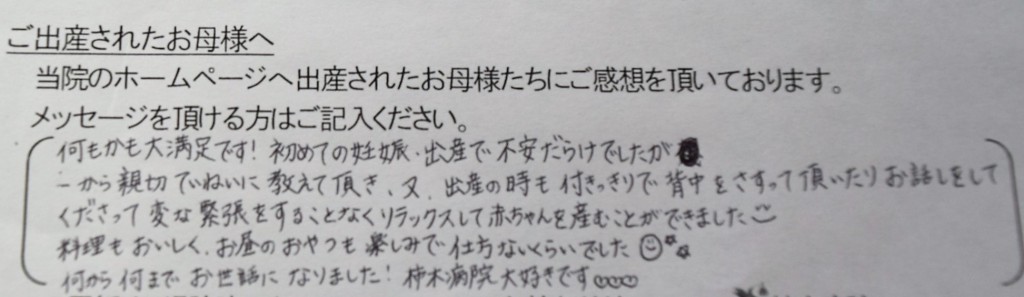 ご出産されたお母様へ
当院のホームページへ出産されたお母様たちにご感想を頂いております。
メッセージを頂ける方はご記入ください。
何もかも大満足です！初めての妊娠・出産で不安だらけでしたが
一から親切でいねいに教えて頂き、又、出産の時も付きっきりで背中をさすって頂いたりお話しをして
くださって変な緊張をすることなくリラックスして赤ちゃんを産むことができました
料理もおいしく、お昼のおやつも楽しみで仕方ないくらいでした
何から何までお世話になりました！柿木病院大好きです♡♡♡